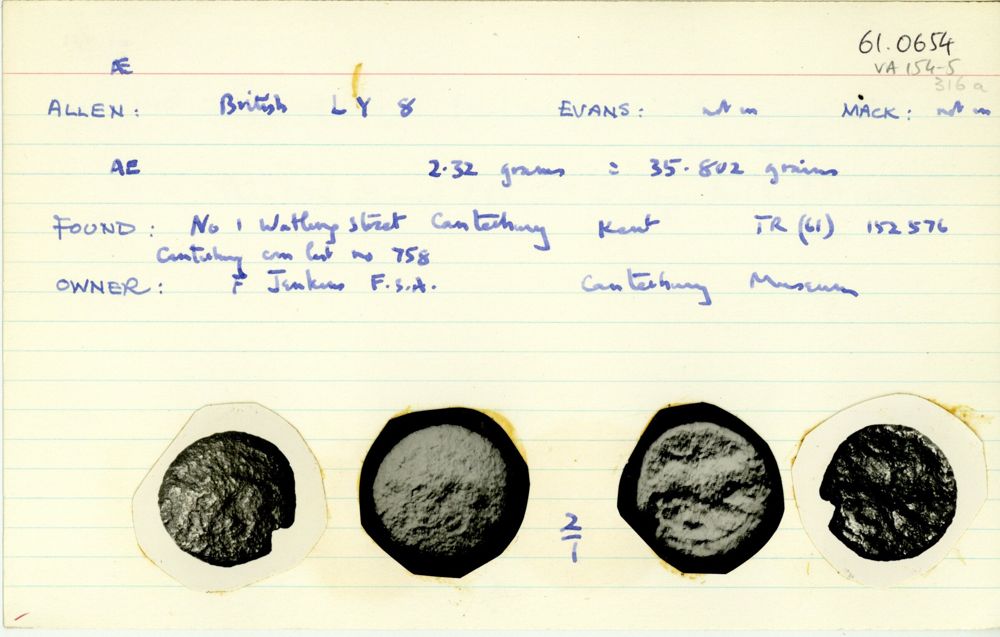 61.0654
Æ
VA 154-5
316 a
ALLEN: British L Y 8 EVANS: not in MACK: not in
AE 2.32 grams = 35.802 grains
FOUND: No 1 Watling Street Canterbury Kent TR (61) 152576
Canterbury coin list no 758
OWNER: F Jenkins F.S.A. Canterbury Museum
2/1